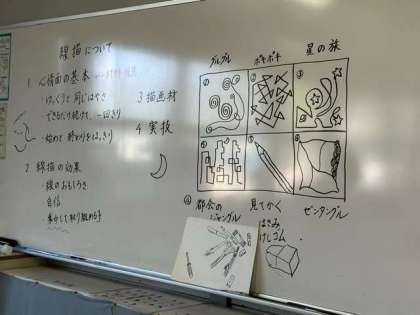 線描について
1. 心情面の基本
・けっくうと同じはやさ
・できるだけ続けて、一回きり
・始めて 終わりをはっきり
2. 線描の効果
・線のおもしろさ
・自信
・集中して取り組める子
3 描画材
4 実技
グルグル
ポキポキ
星の旅
①
②
③
④
⑤
⑥
都会の
ジャングル
見てかく
はさみ
けしゴム
ゼンタングル